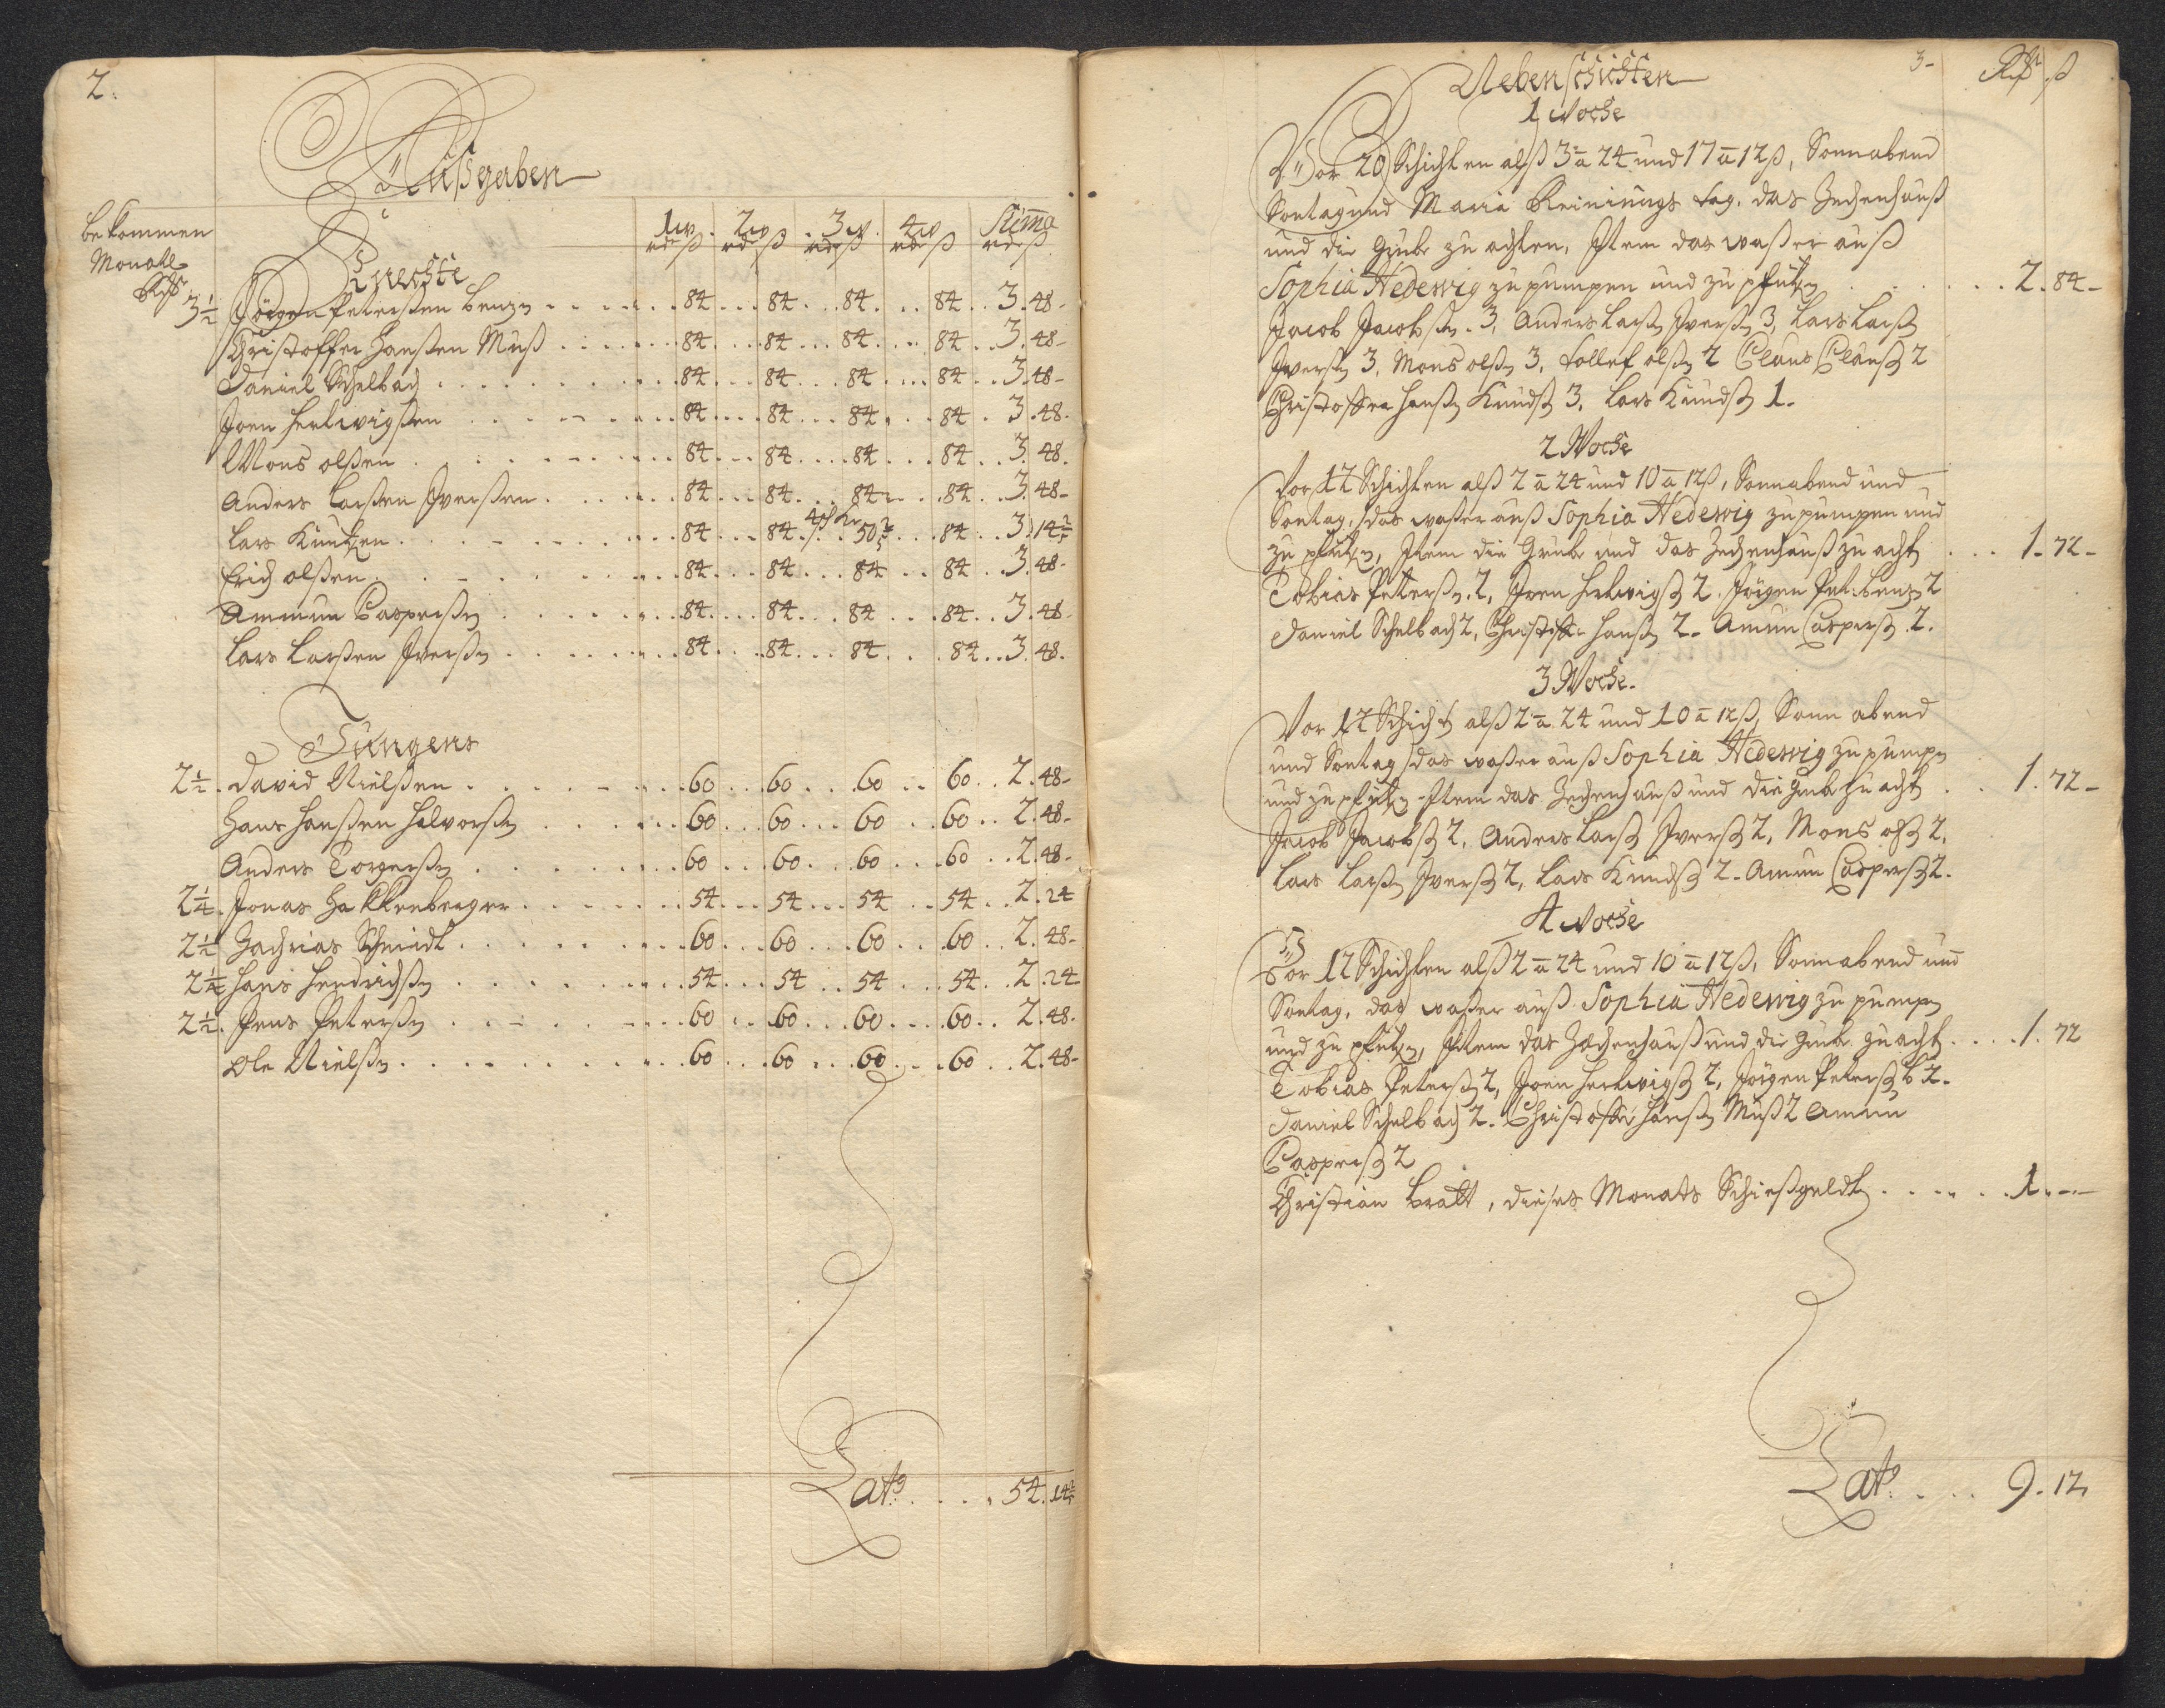 2.
Außgaben
bekommen
Monatl.
Rthr
1 w. 2 w. 3 w. 4 w. Suma
rd ß rd ß rd ß rd ß rd ß
Knechte
3 1/2 Jörgen Peterßen Benzn 84 84 84 84 3. 48
Christoffer Hanßen Muß 84 84 84 84 3. 48
Daniel Schelbach 84 84 84 84 3. 48
Joen Herlwigßen 84 84 84 84 3. 48
Mons olßen 84 84 84 84 3. 48
Anders Larßen Iverßen 84 84 84 84 3. 48
Lars Knutzen 84 84 50 2/5 84 3. 14 2/5
Erich olßen 84 84 84 84 3. 48
Ammun Casperßn 84 84 84 84 3. 48
Lars Larßen Iverßn 84 84 84 84 3. 48
Jungens
2 1/2. David Nielßen 60 60 60 60 2. 48
Hans Hanßen Halvorßn 60 60 60 60 2. 48
Anders Torgerßn 60 60 60 60 2. 48
2 1/4. Jonas Hakkenberger 54 54 54 54 2. 24
2 1/2 Zachrias Schmidt 60 60 60 60 2. 48
2 1/4 Hans Hendrichßn 54 54 54 54 2. 24
2 1/2. Jens Peterßn 60 60 60 60 2. 48
Ole Nielßn 60 60 60 60 2. 48
Lats 54. 14 2/5
3
Rthr ß
Nebenschichten
1 Woche
Vor 20 Schichten alß 3 a 24 und 17 a 12 ß, Sonnabend
Sontag und Maria Reinigungs tag. das Zechenhauß
und die Grube zu achten, Item das waßer auß
Sophia Hedewig zu pumpen und zu pfützn 2. 84
Jacob Jacobßn. 3, Anders Larßn Iverßn 3, Lars Larßn
Iverßn 3, Mons olßn 3, tollef olßn 2 Claus Claußn 2
Christoffer Hanßn Knudß 3, Lars Knudß 1.
2 Woche
Vor 12 Schichten alß 2 a 24 und 10 a 12 ß, Sonnabend und
Sontag, das waßer auß Sophia Hedewig zu pumpen und
zu pfützn, Item die Grube und das Zechenhauß zu acht 1. 72
Tobias Peterßn 2, Joen Herlwigß 2. Jörgen Pet: Benzn 2
Daniel Schelbach 2, Christoffer Hanßn 2. Amun Casperß 2.
3 Woche.
Vor 12 Schicht alß 2 a 24 und 10 a 12 ß, Sonnabend
und Sontag das waßer auß Sophia Hedewig zu pumpn
und zu pfützn Item das Zechenhauß und die Grube zu acht 1. 72
Jacob Jacobß 2, Anders Larß Iverß 2, Mons olß 2,
Lars Larßn Iverß 2, Lars Knudß 2. Amun Casperß 2.
4 Woche
Vor 12 Schichten alß 2 a 24 und 10 a 12 ß, Sonnabend und
Sontag, das waßer auß Sophia Hedewig zu pumpn
und zu pfützn, Item das Zechenhauß und die Grube zu acht 1. 72
Tobias Peterß 2, Joen Herlwigß 2, Jörgen Peterß B 2.
Daniel Schelbach 2. Christoffer Hanßn Muß 2 Amun
Casperß 2
Christian Bratt, dieses Monats Schießgeldt 1.
Lats 9. 12